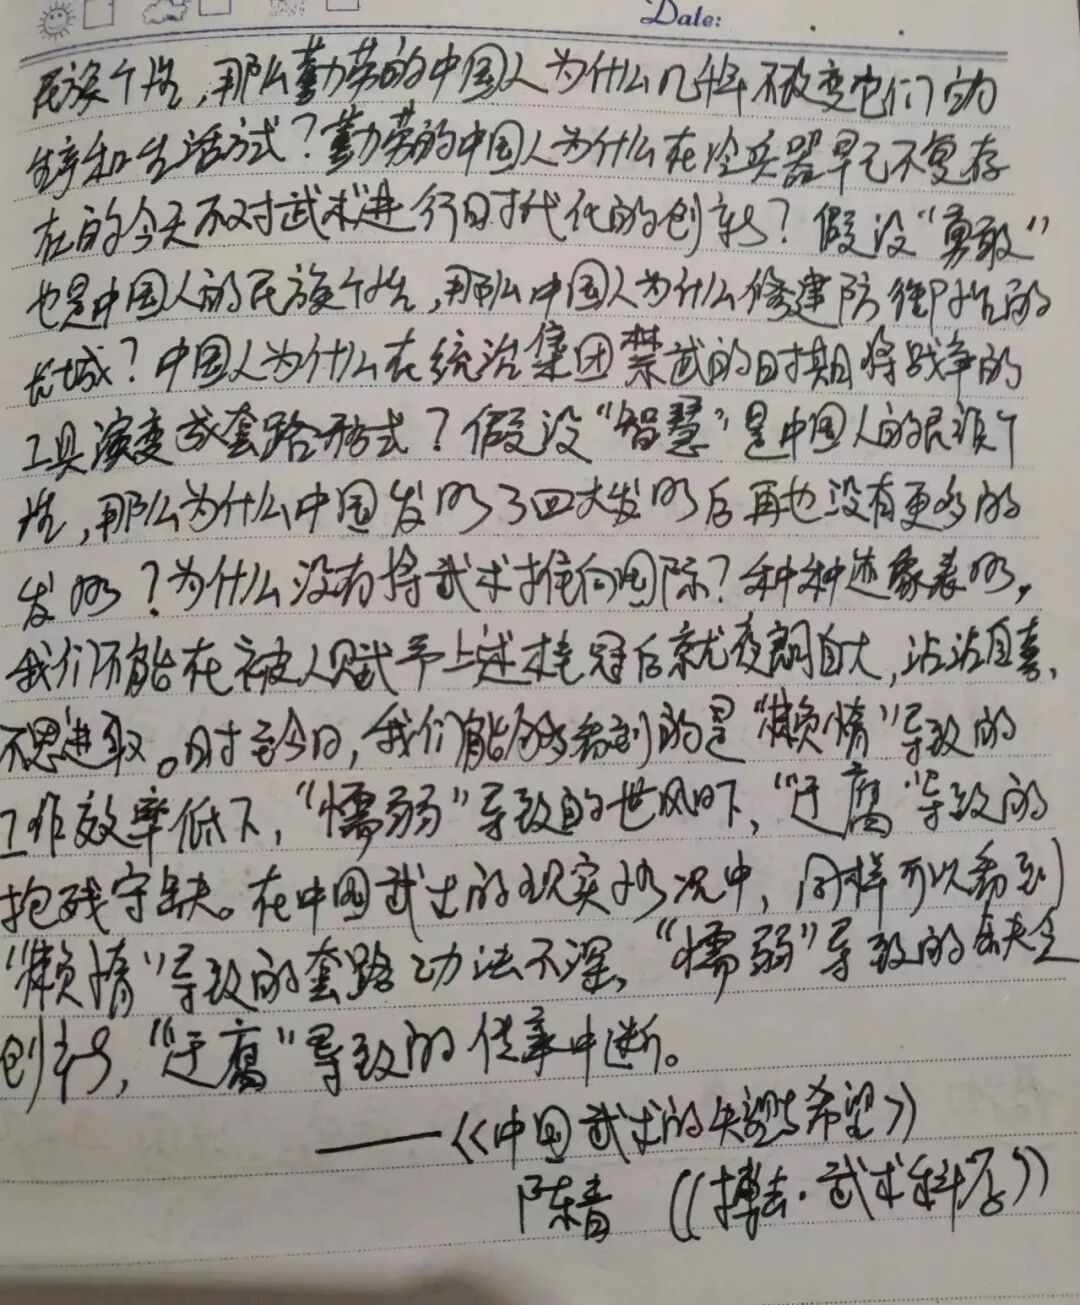 Date:
民族个性，那么勤劳的中国人为什么几千年不改变它们的
生产和生活方式？勤劳的中国人为什么在冷兵器早已不复存
在的今天不对武术进行时代化的创新？假没“勇敢”
也是中国人的民族个性，那么中国人为什么修建防御性的
长城？中国人为什么在统治集团禁武的时期将战争的
工具演变成套路形式？假没“智慧”是中国人的民族个
性，那么为什么中国发明了四大发明后再也没有更多的
发明？为什么没有将武术推向国际？种种迹象表明，
我们不能在被人赋予上述桂冠后就夜郎自大，沾沾自喜，
不思进取。时至今日，我们能够看到的是“懒惰”导致的
工作效率低下，“懦弱”导致的世风日下，“迂腐”导致的
抱残守缺。在中国武术的现实状况中，同样可以看到
“懒惰”导致的套路功法不深，“懦弱”导致的丧失
创新，“迂腐”导致的传承中断。
——《中国武术的失望与希望》
陈青 《搏击·武术科学》